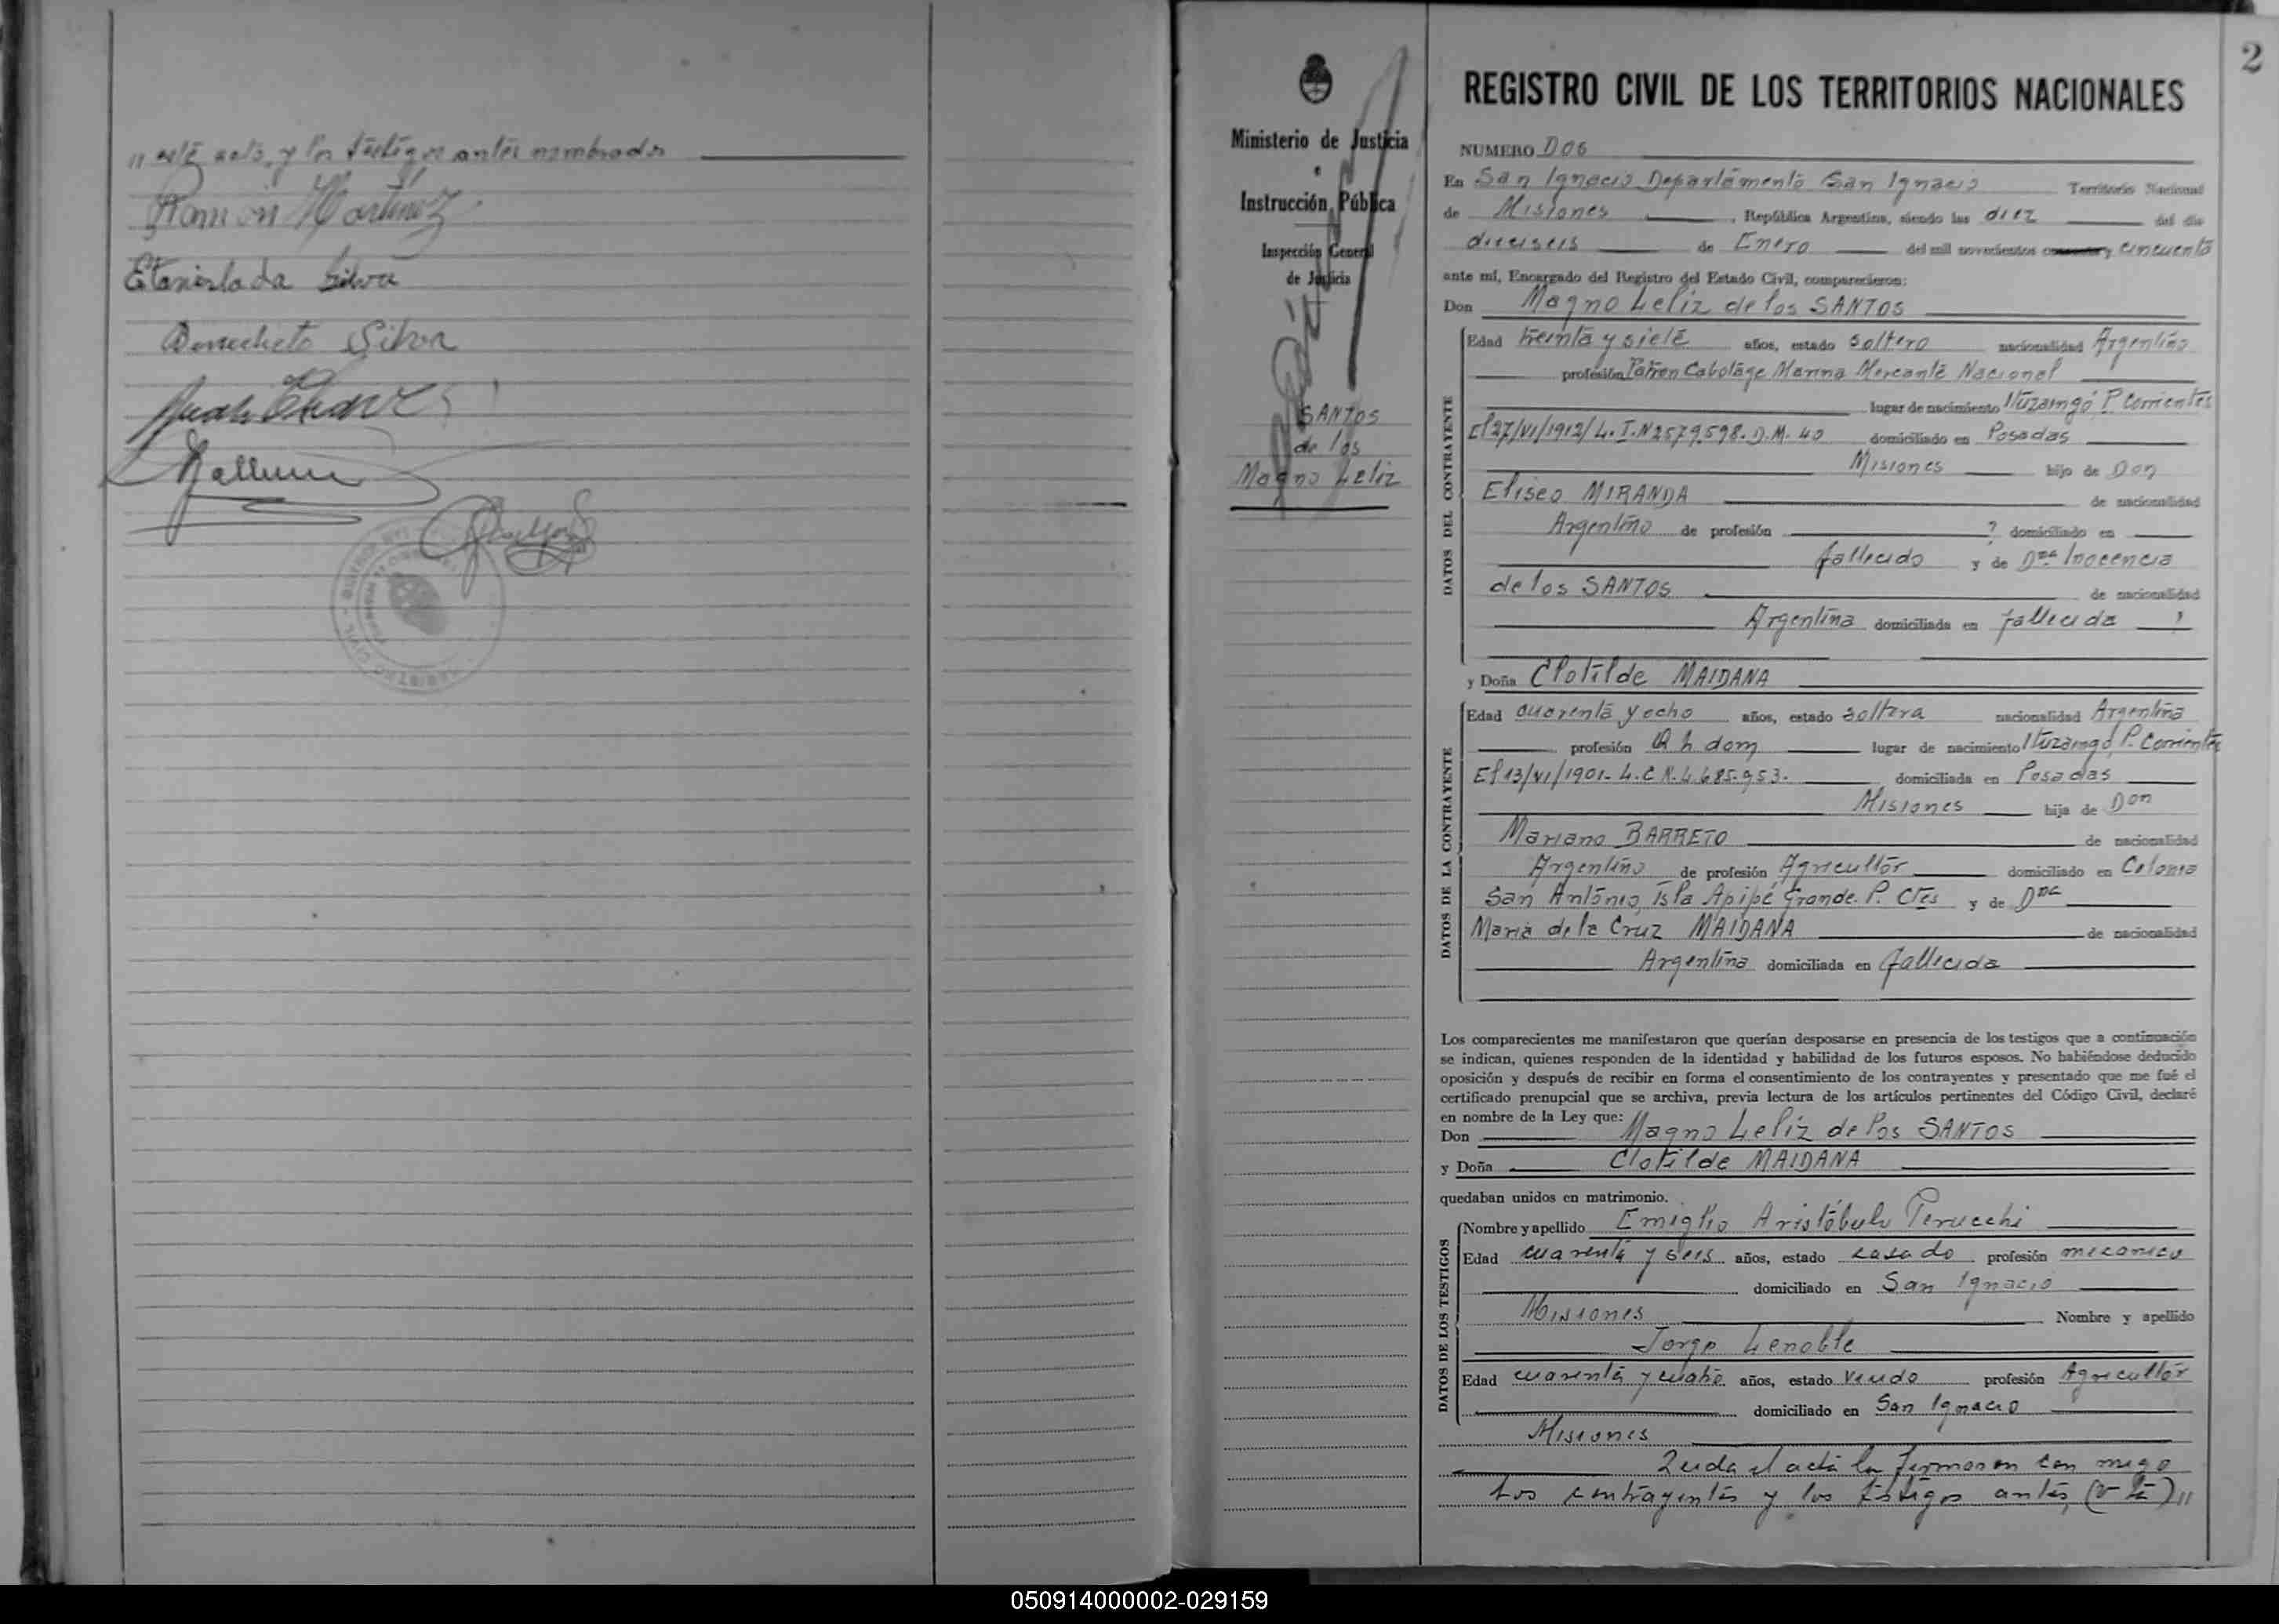 " este acto, y los testigos antes nombrados
Ramón Martinez
Etanislada Silva
Silva
Chavez
REGISTRO CIVIL
2
Ministerio de Justicia
e
Instrucción Pública
Inspección General
de Justicia
SANTOS
de los
Magno Leliz
REGISTRO CIVIL DE LOS TERRITORIOS NACIONALES
NUMERO DOS
En San Ignacio Departamento San Ignacio Territorio Nacional
de Misiones , República Argentina, siendo las diez del día
dieciseis de Enero del mil novecientos cuarenta y cincuenta
ante mí, Encargado del Registro del Estado Civil, comparecieron:
Don Magno Leliz de los SANTOS
DATOS DEL CONTRAYENTE
Edad treinta y siete años, estado soltero nacionalidad Argentino
profesión Patron Cabotage Marina Mercante Nacional
lugar de nacimiento Ituzaingó P. Corrientes
El 27/VI/1912/ L. I. N 2579.598. D. M. 40 domiciliado en Posadas
Misiones hijo de Don
Eliseo MIRANDA de nacionalidad
Argentino de profesión ? domiciliado en
fallecido y de Dña Inocencia
de los SANTOS de nacionalidad
Argentina domiciliada en fallecida ?
y Doña Clotilde MAIDANA
DATOS DE LA CONTRAYENTE
Edad cuarenta y ocho años, estado soltera nacionalidad Argentina
profesión Q h dom lugar de nacimiento Ituzaingó, P. Corrientes
El 13/VI/1901- L. C N. 4.685.953. domiciliada en Posadas
Misiones hija de Don
Mariano BARRETO de nacionalidad
Argentino de profesión Agricultor domiciliado en Colonia
San Antonio, Isla Apipé Grande. P. Ctes y de Dña
Maria de la Cruz MAIDANA de nacionalidad
Argentina domiciliada en fallecida
Los comparecientes me manifestaron que querían desposarse en presencia de los testigos que a continuación
se indican, quienes responden de la identidad y habilidad de los futuros esposos. No habiéndose deducido
oposición y después de recibir en forma el consentimiento de los contrayentes y presentado que me fué el
certificado prenupcial que se archiva, previa lectura de los artículos pertinentes del Código Civil, declaré
en nombre de la Ley que:
Don Magno Leliz de los SANTOS
y Doña Clotilde MAIDANA
quedaban unidos en matrimonio.
DATOS DE LOS TESTIGOS
Nombre y apellido Emiglio Aristóbulo Perucchi
Edad cuarenta y seis años, estado casado profesión mecanico
domiciliado en San Ignacio
Misiones Nombre y apellido
Jorge Lenoble
Edad cuarenta y cuatro años, estado viudo profesión Agricultor
domiciliado en San Ignacio
Misiones
Leida el acta la firmaron con migo
los contrayentes y los testigos antes, "
050914000002-029159